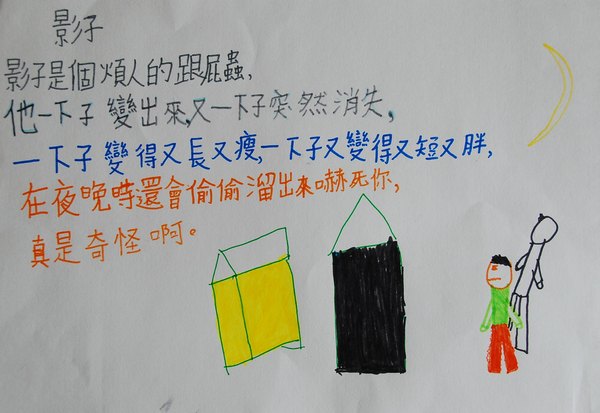 影子
影子是個煩人的跟屁蟲,
他一下子變出來,又一下子突然消失,
一下子變得又長又瘦,一下子又變得又短又胖,
在夜晚時還會偷偷溜出來嚇死你,
真是奇怪啊。